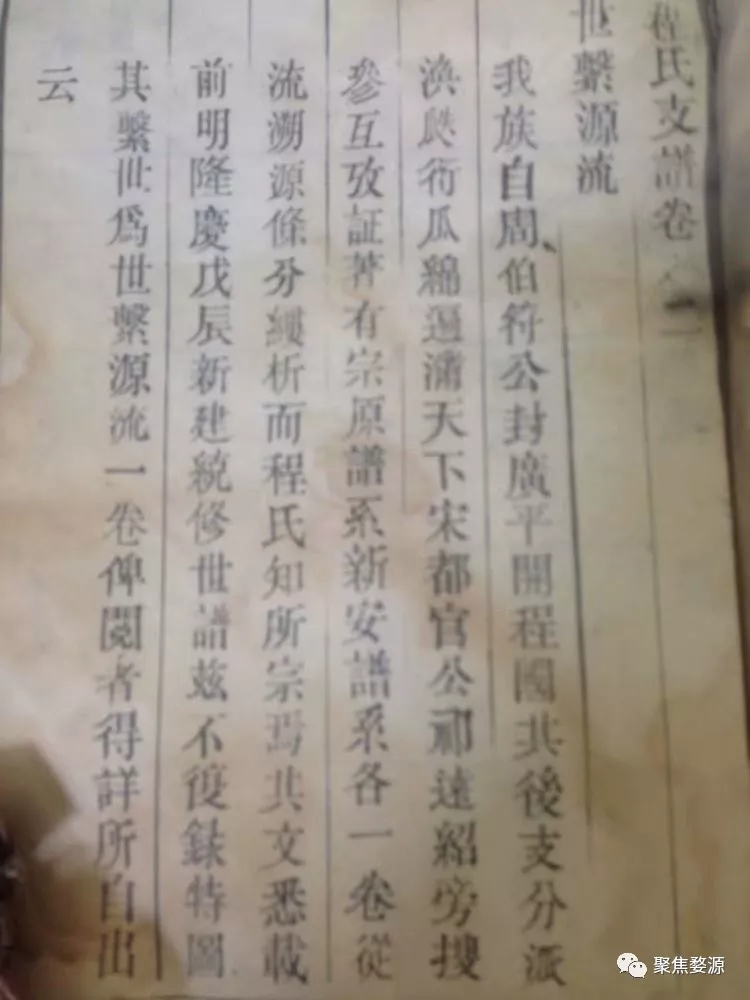 程氏支譜卷之一
世繫源流
我族自周伯符公封廣平開程國其後支分派
渙瓞衍瓜綿遍滿天下宋都官公祁遠紹旁搜
參互攷証著有宗原譜系新安譜系各一卷從
流溯源條分縷析而程氏知所宗焉其文悉載
前明隆慶戊辰新建統修世譜茲不復錄特圖
其繫世爲世繫源流一卷俾閱者得詳所自出
云
聚焦婺源